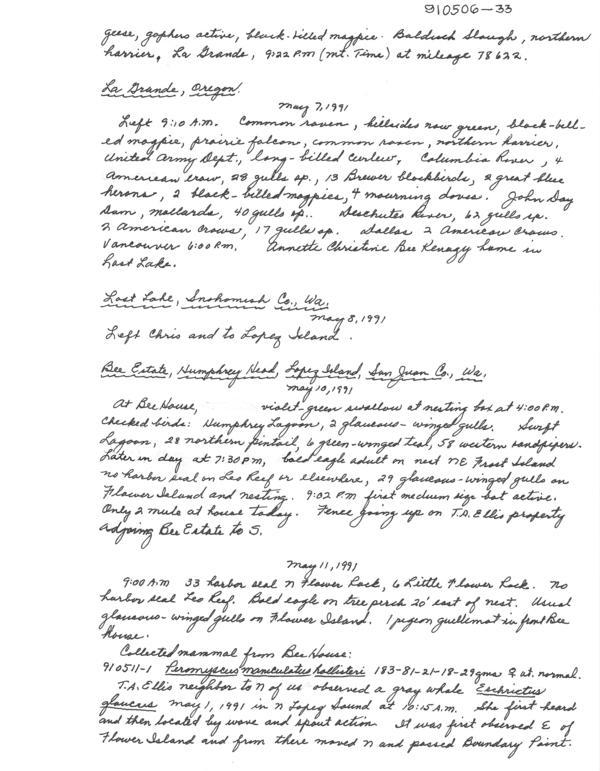 910506-33
geese, gophers active, black-billed magpie. Baldock Slough, northern
harrier, La Grande, 9:22 P.M (Mt. Time) at mileage 78622.
La Grande, Oregon.
May 7, 1991
Left 9:10 A.M. Common raven, hillsides now green, black-bill-
ed magpie, prairie falcon, common raven, northern harrier,
United Army Dept., long-billed curlew, Columbia River, 4
American crow, 28 gulls sp., 13 Brewer blackbirds, 2 great blue
herons, 2 black-billed magpies, 4 mourning doves. John Day
Dam, mallards, 40 gulls sp.. Deschutes River, 62 gulls sp.
2 American Crows, 17 gulls sp. Dallas 2 American Crows.
Vancouver 6:00 P.M. Annette Christine Bee Kenagy home in
Lost Lake.
Lost Lake, Snohomish Co., Wa.
May 8, 1991
Left Chris and to Lopez Island.
Bee Estate, Humphrey Head, Lopez Island, San Juan Co., Wa.
May 10, 1991
At Bee House, violet-green swallow at nesting box at 4:00 P.M.
Checked birds: Humphrey Lagoon, 2 glaucous-winged gulls. Swift
Lagoon, 28 northern pintail, 6 green-winged teal, 58 western sandpipers.
Later in day at 7:30 PM, bald eagle adult on nest NE Frost Island
no harbor seal on Leo Reef or elsewhere, 29 glaucous-winged gulls on
Flower Island and nesting. 9:02 P.M first medium size bat active.
Only 2 mule at house today. Fence going up on T.A. Ellis property
adjoing Bee Estate to S.
May 11, 1991
9:00 A.M 33 harbor seal N Flower Rock, 6 Little Flower Rock. No
harbor seal Leo Reef. Bald eagle on tree perch 20' east of nest. Usual
glaucous-winged gulls on Flower Island. 1 pigeon guillemot in front Bee
House.
Collected mammal from Bee House:
910511-1 Peromyscus maniculatus hollisteri 183-81-21-18-29gms ♀ ut. normal.
T.A. Ellis neighbor to N of us observed a gray whale Eschrictus
glaucus May 1, 1991 in N Lopez Sound at 10:15 A.M. She first heard
and then located by wave and spout action. It was first observed E of
Flower Island and from there moved N and passed Boundary Point.